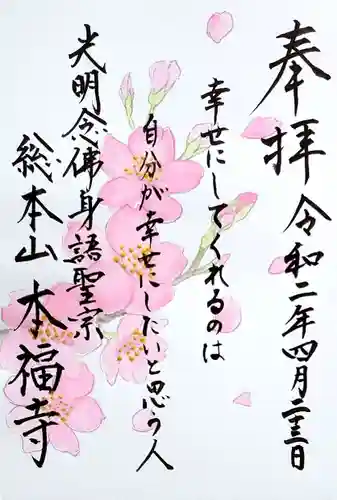 奉拝 令和二年四月二十三日
幸せにしてくれるのは
自分が幸せにしたいと思う人
光明念佛身語聖宗
総本山 本福寺